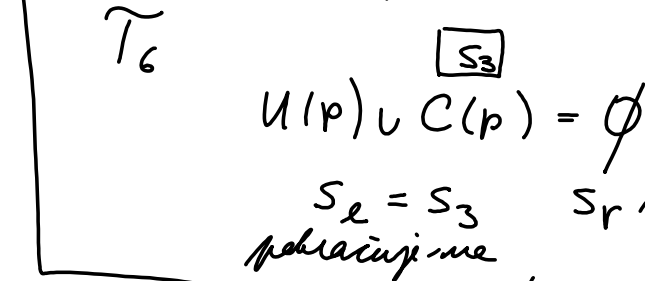 T̃₆
s₃
U(p) ∪ C(p) = ∅
s_l = s₃ s_r
pokračujeme